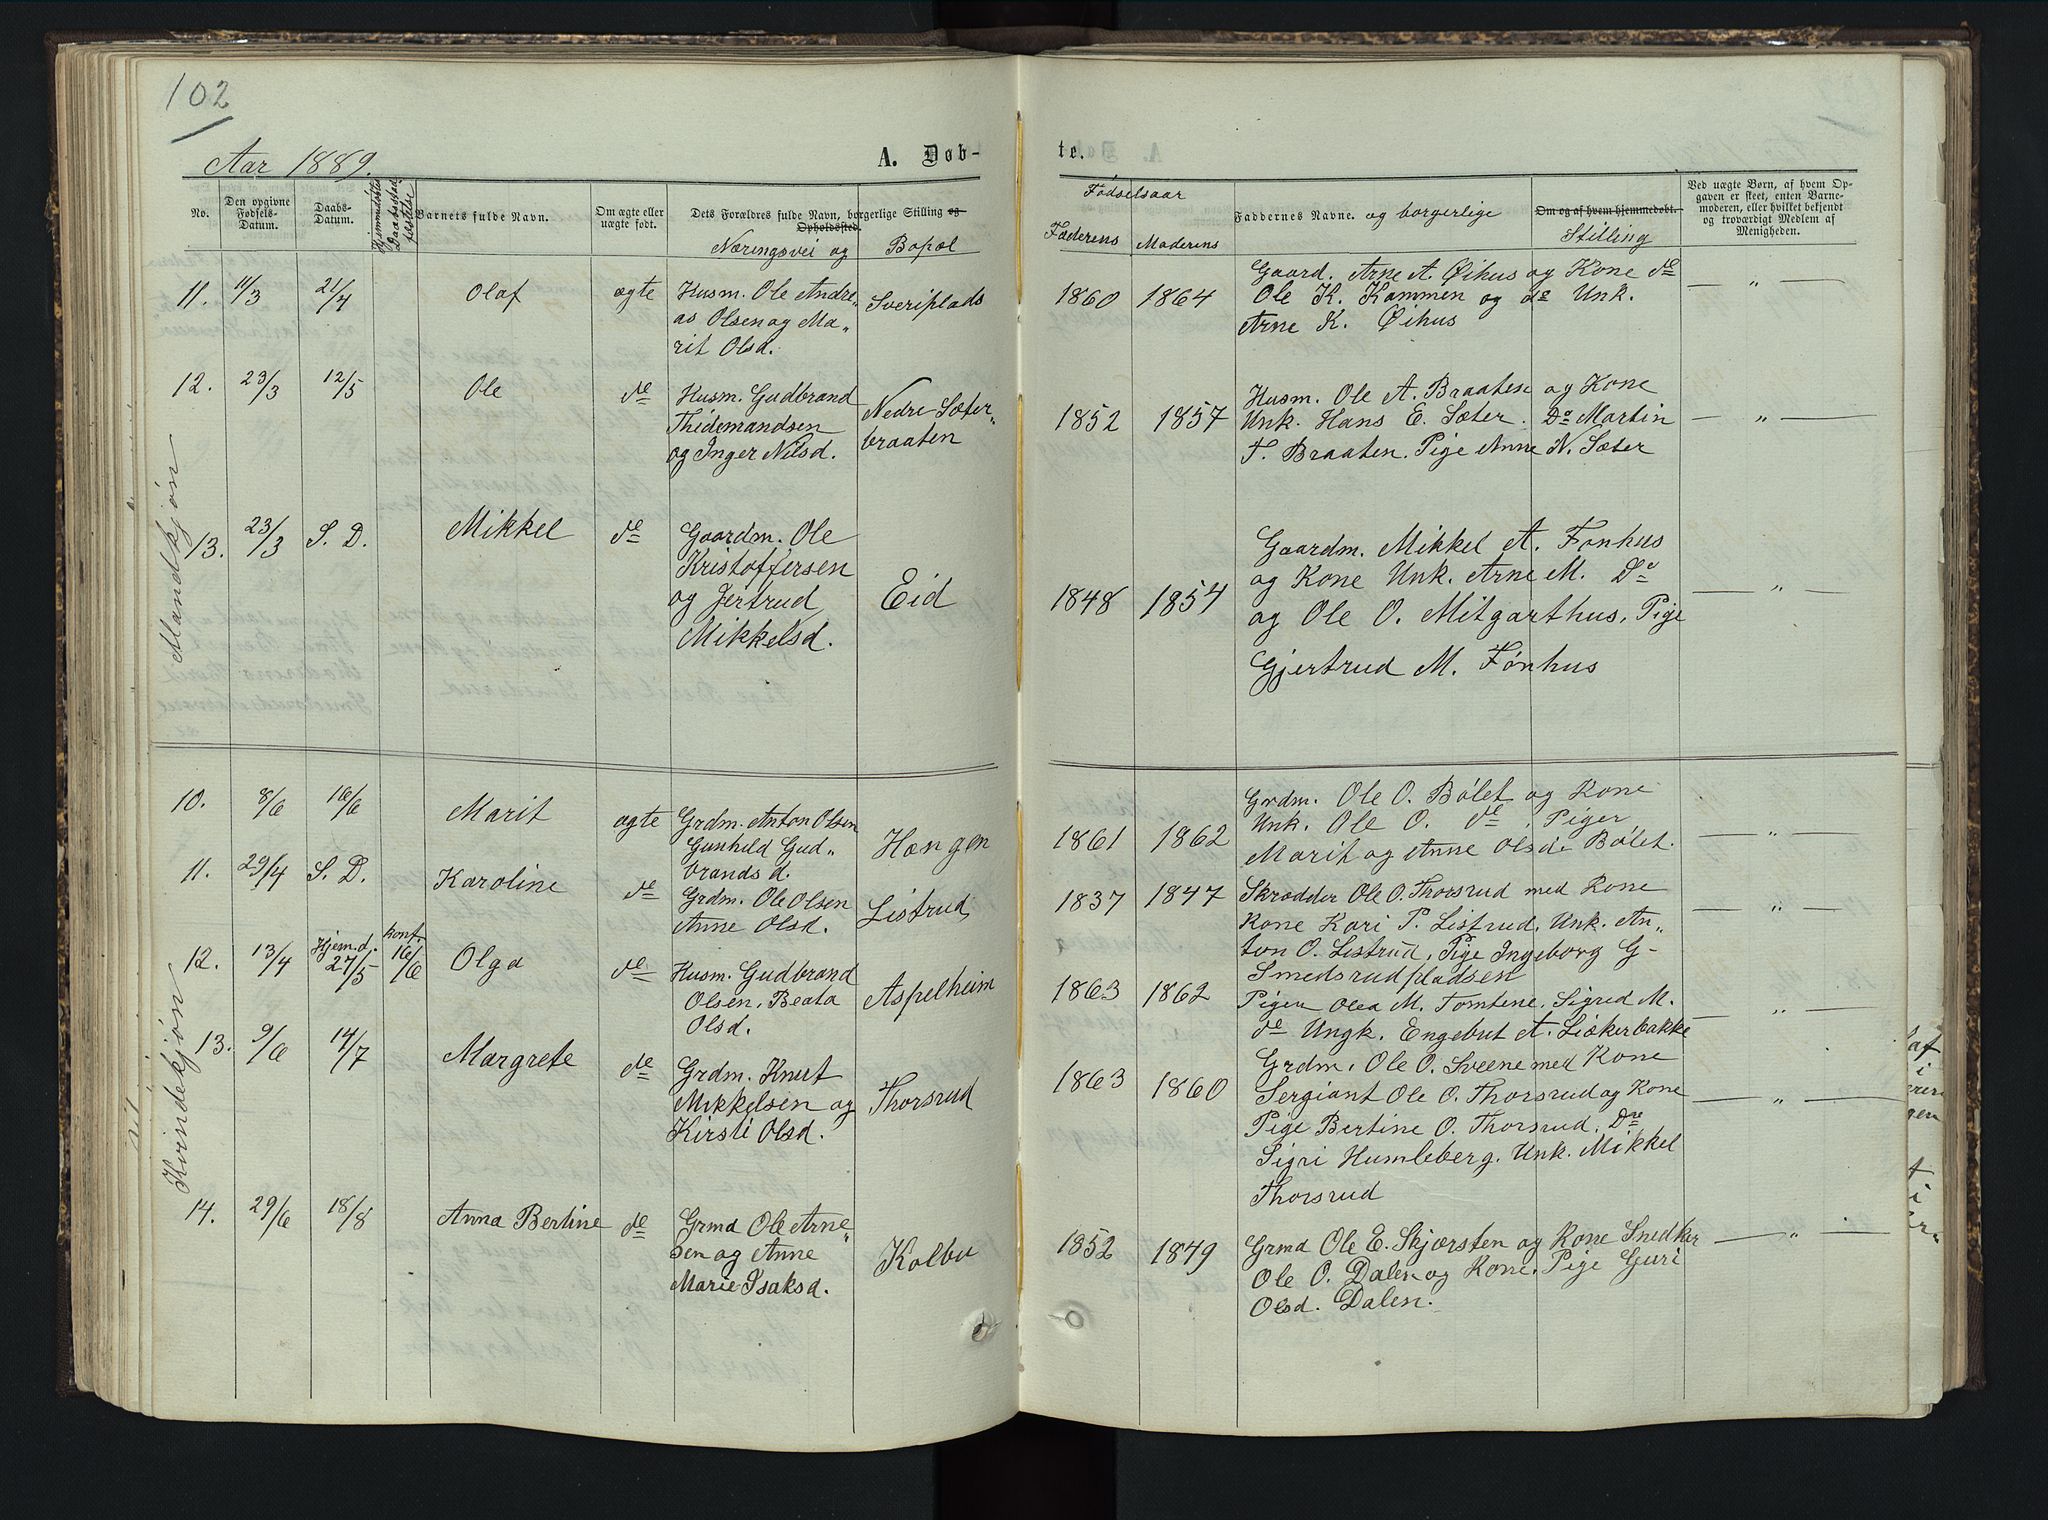 102
Aar 1889.
A. Døb-
te.
No.
Den opgivne Fødsels-Datum.
Daabs-Datum.
Barnets fulde Navn.
Om ægte eller uægte født.
Dets Forældres fulde Navn, borgerlige Stilling og Opholdssted.
Næringsvei og Bopæl
Fødselsaar
Faderens
Moderens
Faddernes Navne. og borgerlige
Om og af hvem hjemmedøbt.
Stilling
Ved uægte Børn, af hvem Op-
gaven er skeet, enten Barne-
moderen, eller hvilket bekjendt
og troværdigt Medlem af
Menigheden.
Mandkjøn
11. 11/3 21/4 Olaf ægte Husm. Ole Andre-
as Olsen og Ma-
rit Olsd.
Sveriplads
1860 1864
Gaard. Arne A. Øihus og Kone de
Ole K. Kammen og do Unk.
Arne K. Øihus
— " —
12. 23/3 12/5 Ole de Husm. Gudbrand
Thidemandsen
og Inger Nilsd.
Nedre Sæter-
braaten
1852 1857
Husm. Ole A. Braaten og Kone
Unk. Hans E. Sæter. Do Martin
T. Braaten. Pige Anne N. Sæter
— " —
13. 23/3 S. D. Mikkel de Gaardm. Ole
Kristoffersen
og Jertrud
Mikkelsd.
Eid
1848 1854
Gaardm. Mikkel A. Fønhus
og Kone Unk. Arne M. Do
og Ole O. Mitgarthus, Pige
Gjertrud M. Fønhus
— " —
Kvindekjøn
10. 8/6 16/6 Marit ægte Grdm. Anton Olsen
Gunhild Gud-
brandsd.
Hængen
1861 1862
Grdm. Ole O. Bølet og Kone
Unk. Ole O. de Piger
Marit og Anne Olsd. Bølet.
— " —
11. 29/4 S. D. Karoline de Grdm. Ole Olsen
Anne Olsd.
Listrud
1837 1847
Skrædder Ole O. Thorsrud med Kone
Kone Kari P. Listrud, Unk. An-
ton O. Listrud, Pige Ingeborg G-
Smedsrudpladsen
— " —
12. 13/4 Hjem.d. 27/5 Konf. 16/6 Olga de Husm. Gudbrand
Olsen, Beata
Olsd.
Aspelheim
1863 1862
Pigen Olea M. Tomtene, Sigrid M.
de Ungk. Engebut A. Liækerbakke
— " —
13. 9/6 14/7 Margrete de Grdm. Knut
Mikkelsen og
Kirsti Olsd.
Thorsrud
1863 1860
Grdm. Ole O. Sveene med Kone
Sergiant Ole O. Thorsrud og Kone
Pige Bertine O. Thorsrud, Do
Sigri Humleberg. Unk. Mikkel
Thorsrud
— " —
14. 29/6 18/8 Anna Bertine de Grmd Ole Arne-
sen og Anne
Marie Isaksd.
Kolbu
1852 1849
Grmd Ole E. Skjærsten og Kone Snedker
Ole O. Dalen og Kone, Pige Guri
Olsd. Dalen.
— " —